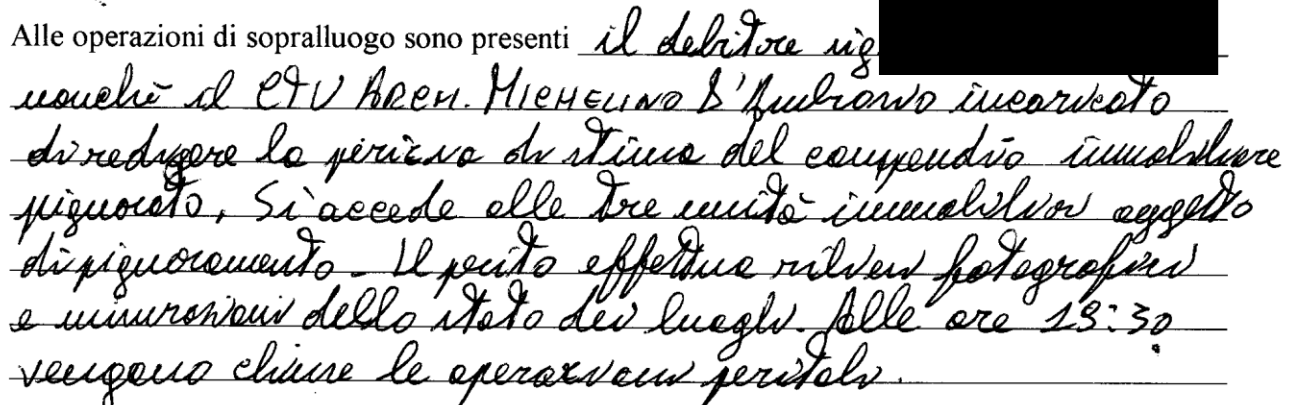 Alle operazioni di sopralluogo sono presenti il debitore sig
nonchè il CTU ARCH. MICHELINO D'Ambrosio incaricato
di redigere la perizia di stima del compendio immobiliare
pignorato, Si accede alle tre unità immobiliari oggetto
di pignoramento - Il perito effettua rilievi fotografici
e misurazioni dello stato dei luoghi. Alle ore 13:30
vengono chiuse le operazioni peritali.